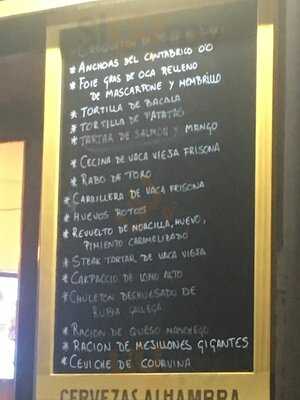 * ANCHOAS DEL CANTABRICO 0'0
* FOIE GRAS DE OCA RELLENO
DE MASCARPONE Y MEMBRILLO
* TORTILLA DE BACALA
* TORTILLA DE PATATAS
* TARTAR DE SALMON Y MANGO
* CECINA DE VACA VIEJA FRISONA
* RABO DE TORO
* CARRILLERA DE VACA FRISONA
* HUEVOS ROTOS
* REVUELTO DE MORCILLA, HUEVO,
PIMIENTO CARAMELIZADO
* STEAK TARTAR DE VACA VIEJA
* CARPACCIO DE LOMO ALTO
* CHULETON DESHUESADO DE
RUBIA GALLEGA
* RACION DE QUESO MANCHEGO
* RACION DE MEJILLONES GIGANTES
* CEVICHE DE COURVINA
CERVEZAS ALHAMBRA